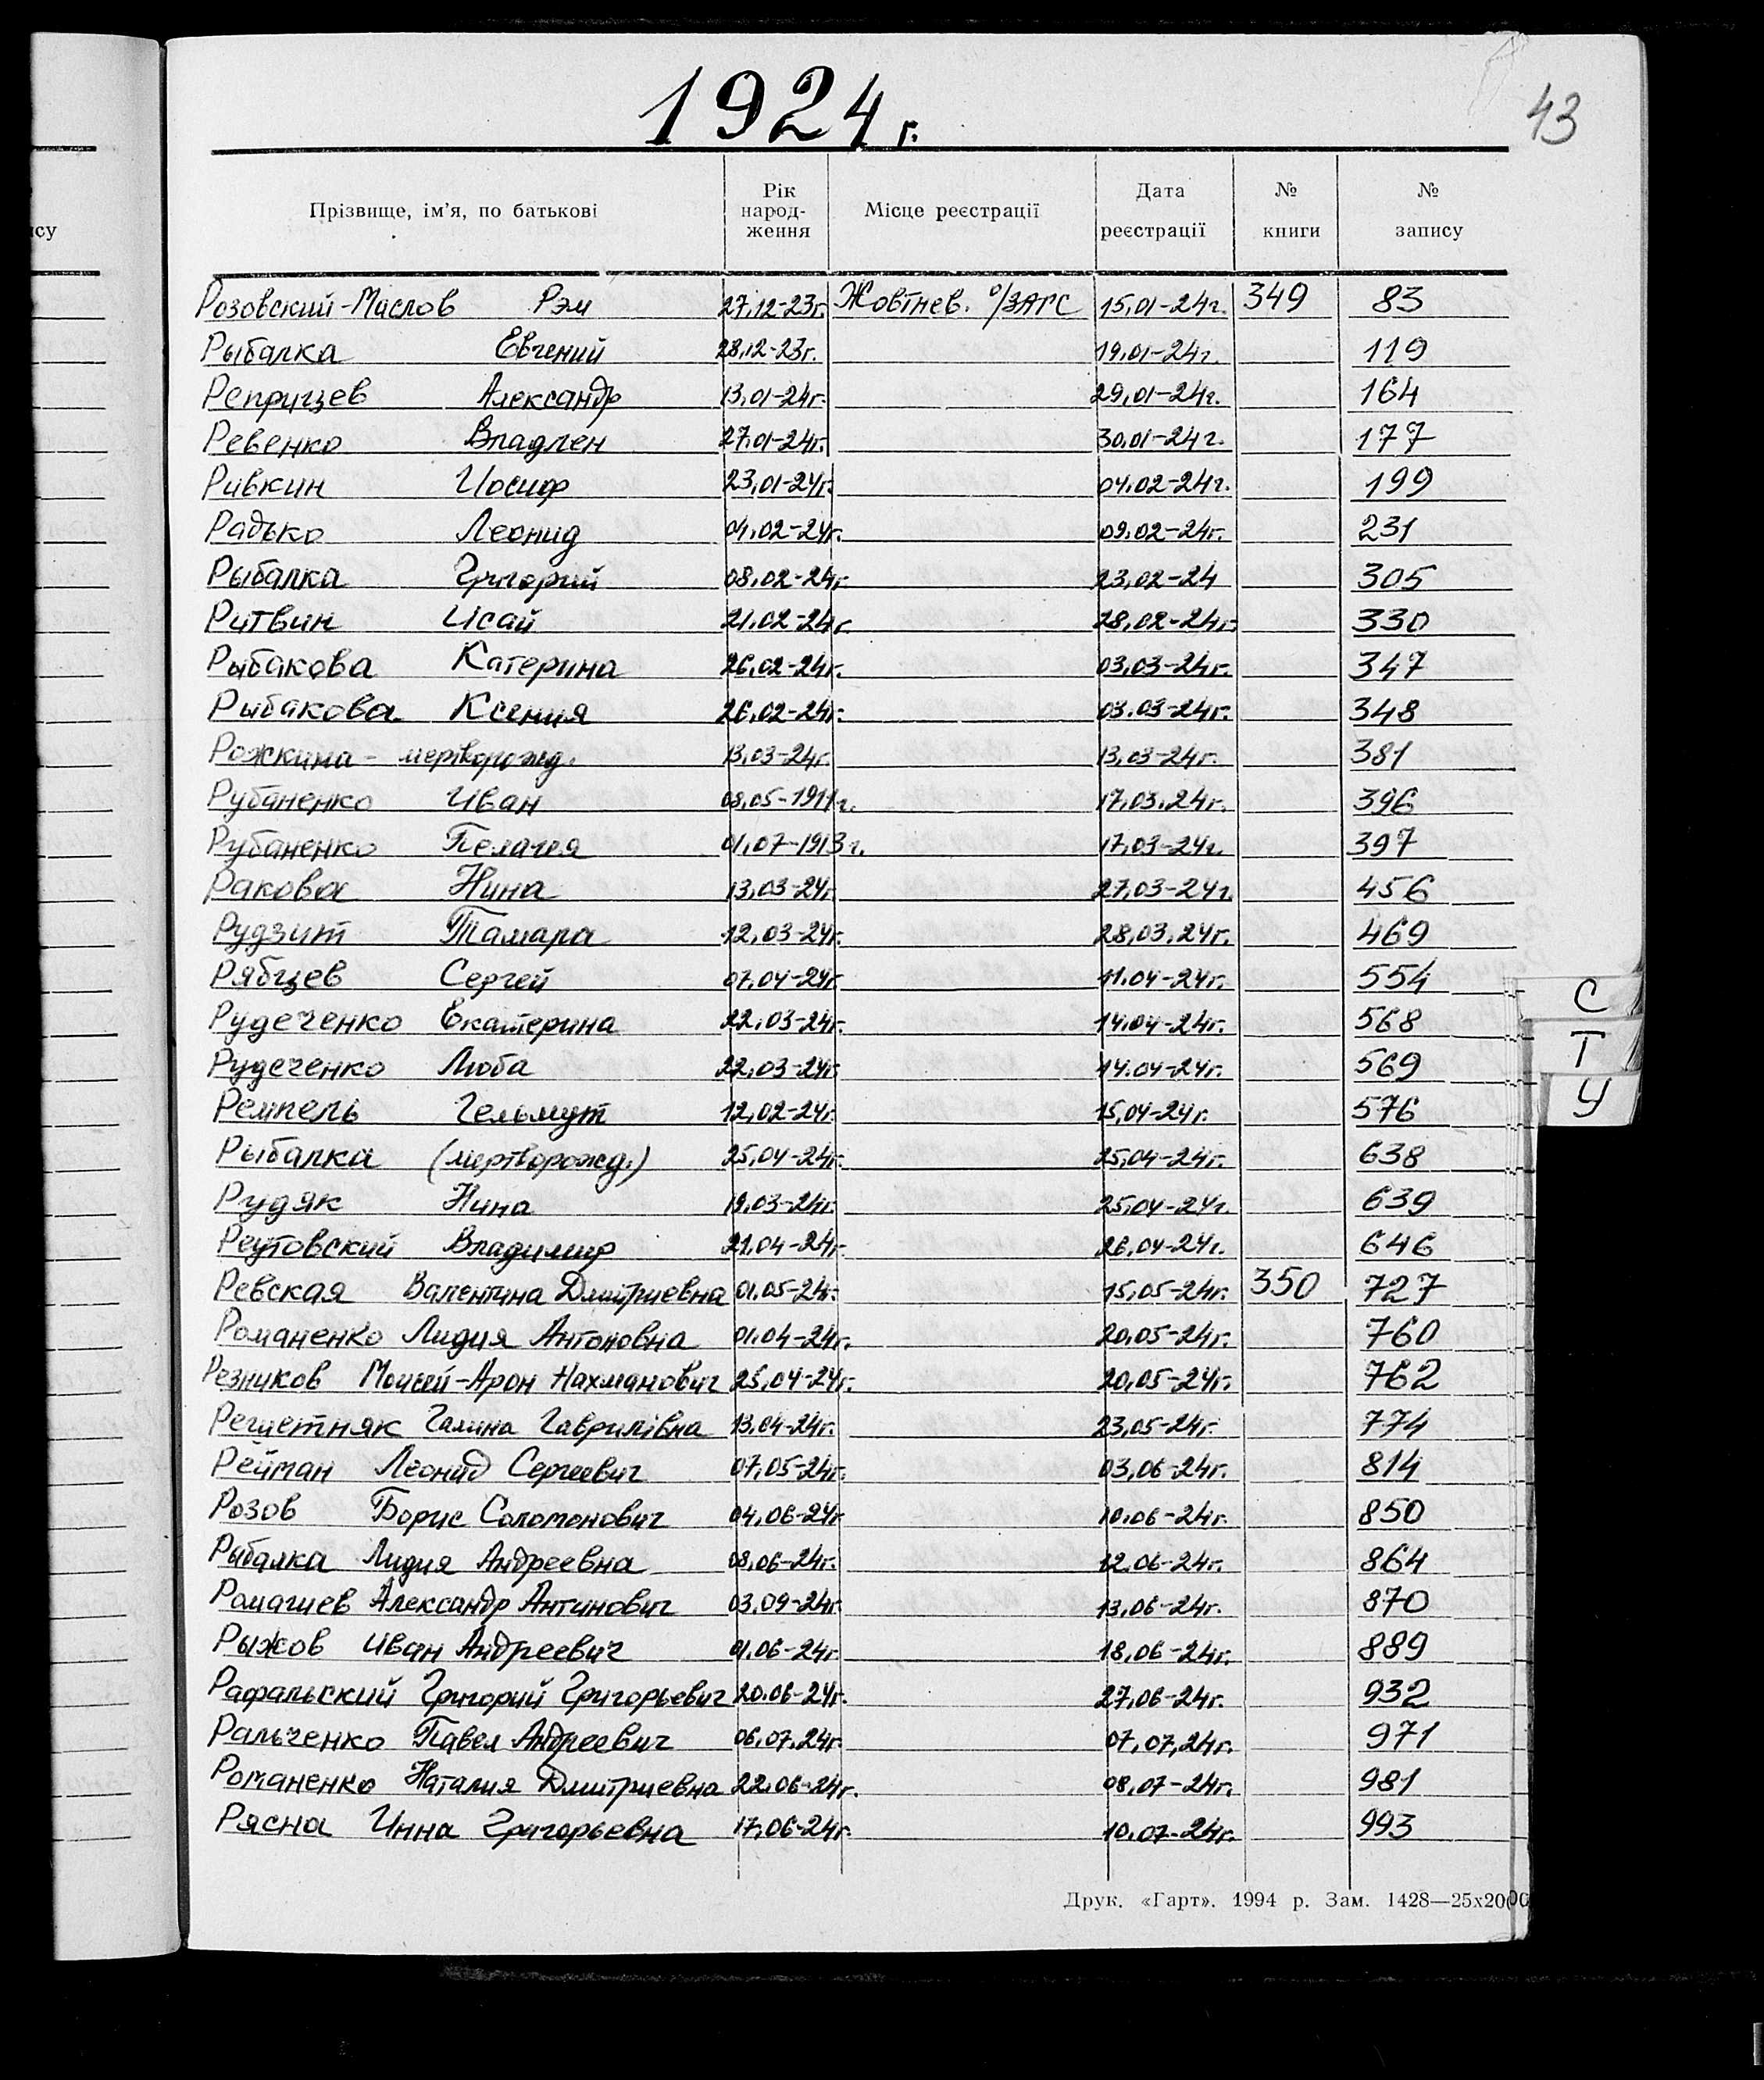 1924 г.
43
Прізвище, ім'я, по батькові Рік народ-ження Місце реєстрації Дата реєстрації № книги № запису
су
Розовский-Маслов Рэм 27.12-23г. Жовтнев. о/ЗАГС 15.01-24г. 349 83
Рыбалка Евгений 28.12-23г. 19.01-24г. 119
Реприцев Александр 13.01-24г. 29.01-24г. 164
Ревенко Владлен 27.01-24г. 30.01-24г. 177
Ривкин Иосиф 23.01-24г. 04.02-24г. 199
Радько Леонид 04.02-24г. 09.02-24г. 231
Рыбалка Григорий 08.02-24г. 23.02-24 305
Ритвин Исай 21.02-24г. 28.02-24г. 330
Рыбакова Катерина 26.02-24г. 03.03-24г. 347
Рыбакова Ксения 26.02-24г. 03.03-24г. 348
Рожкина - мертворожд. 13.03-24г. 13.03-24г. 381
Рубаненко Иван 08.05-1911г. 17.03.24г. 396
Рубаненко Пелагея 01.07-1913г. 17.03-24г. 397
Ракова Нина 13.03-24г. 27.03-24г. 456
Рудзит Тамара 12.03-24г. 28.03.24г. 469
Рябцев Сергей 07.04-24г. 11.04-24г. 554
Рудеченко Екатерина 22.03-24г. 14.04-24г. 568
Рудеченко Люба 22.03-24г. 14.04-24г. 569
Ремпель Гельмут 12.02-24г. 15.04-24г. 576
Рыбалка (мертворожд.) 25.04-24г. 25.04-24г. 638
Рудяк Нина 19.03-24г. 25.04-24г. 639
Реутовский Владимир 21.04-24г. 26.04-24г. 646
Ревская Валентина Дмитриевна 01.05-24г. 15.05-24г. 350 727
Романенко Лидия Антоновна 01.04-24г. 20.05-24г. 760
Резников Моисей-Арон Нахманович 25.04-24г. 20.05-24г. 762
Решетняк Галина Гаврилівна 13.04-24г. 23.05-24г. 774
Рейман Леонид Сергеевич 07.05-24г. 03.06-24г. 814
Розов Борис Соломонович 04.06-24г 10.06-24г. 850
Рыбалка Лидия Андреевна 08.06-24г. 12.06-24г. 864
Ромашев Александр Антинович 03.09-24г. 13.06-24г. 870
Рыжов Иван Андреевич 01.06-24г. 18.06-24г. 889
Рафальский Григорий Григорьевич 20.06-24г. 27.06-24г. 932
Ральченко Павел Андреевич 06.07.24г. 07.07.24г. 971
Романенко Наталия Дмитриевна 22.06-24г. 08.07-24г. 981
Рясна Инна Григорьевна 17.06-24г. 10.07-24г. 993
С
Т
У
Друк. «Гарт». 1994 р. Зам. 1428—25х2000